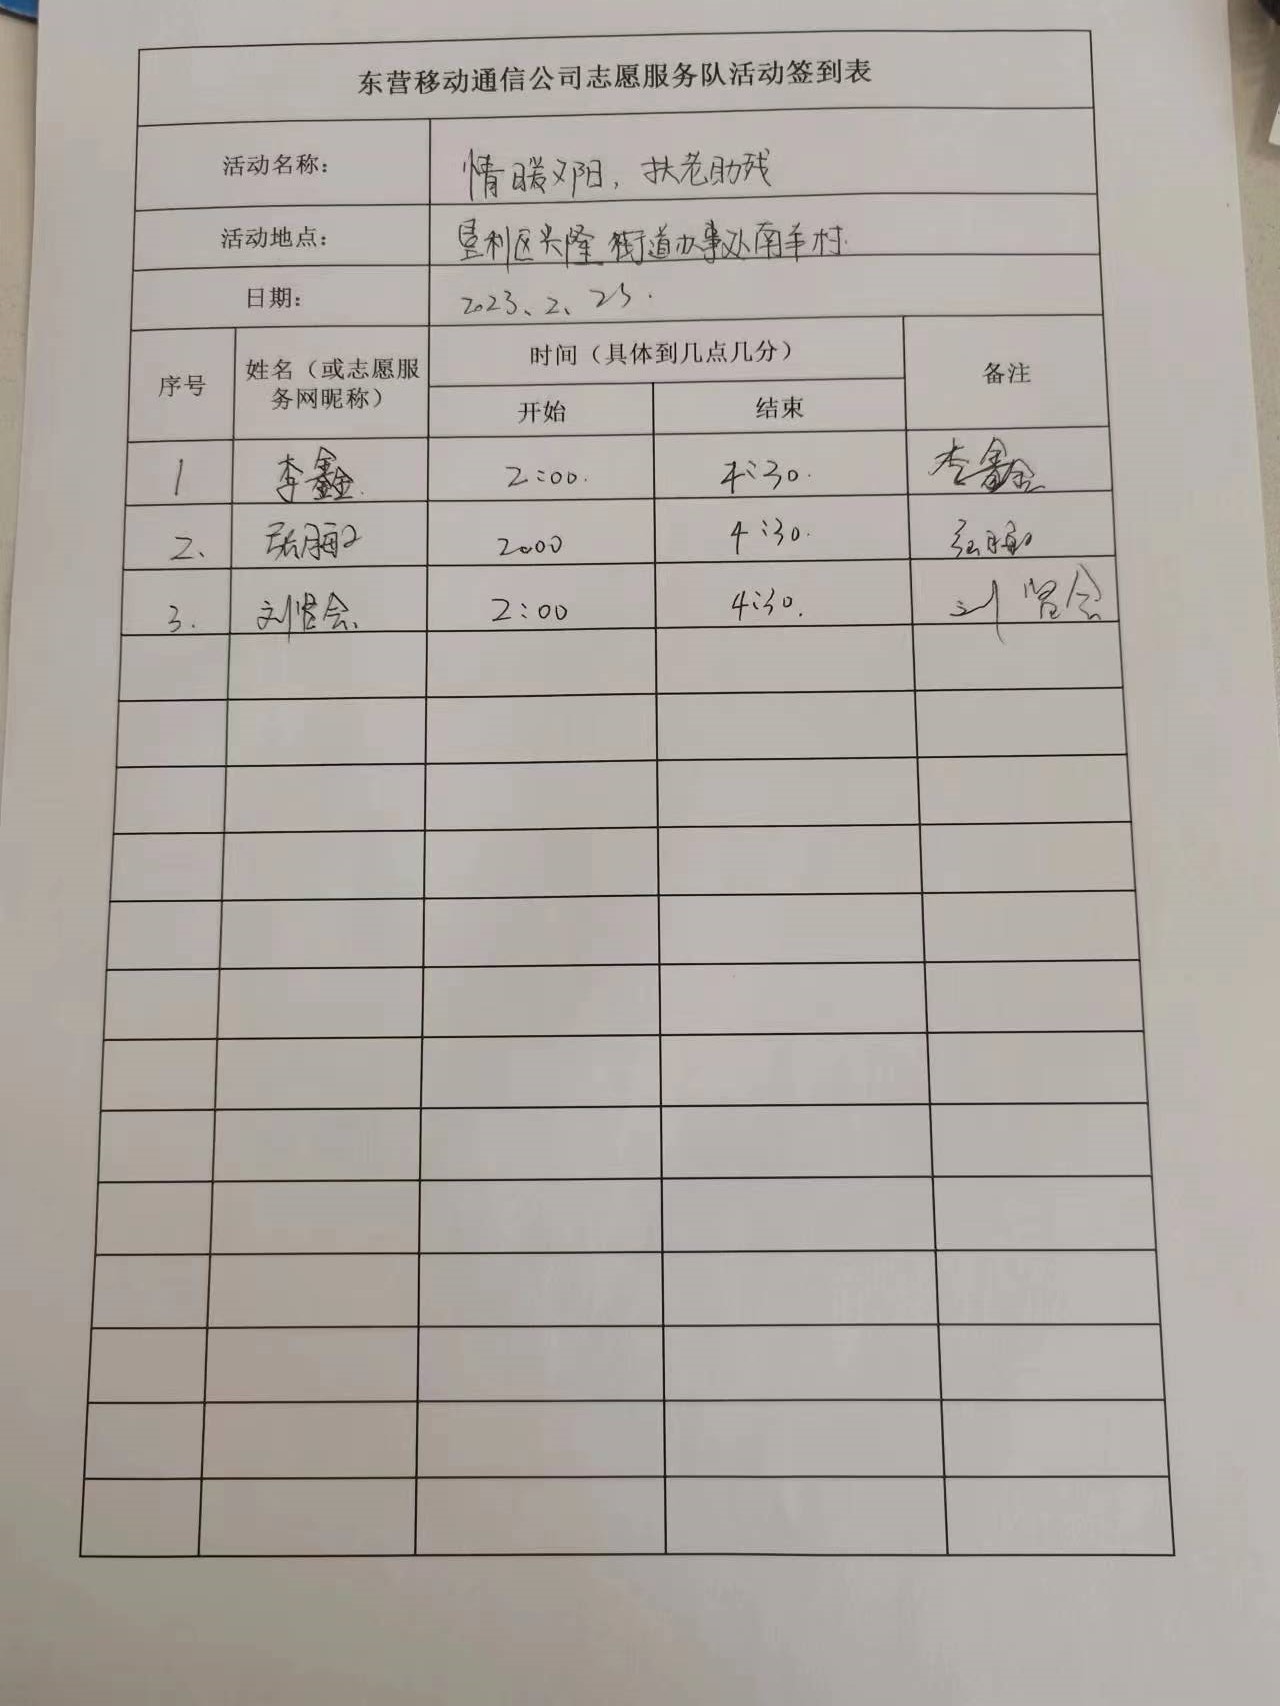 东营移动通信公司志愿服务队活动签到表
活动名称： 情暖夕阳，扶老助残
活动地点： 垦利区兴隆街道办事处南羊村.
日期： 2023、2、23.
序号 姓名（或志愿服务网昵称） 时间（具体到几点几分） 备注
开始 结束
1 李鑫. 2:00. 4:30. 李鑫
2、 张丽 2:00 4:30.
3. 刘会. 2:00 4:30. 刘会